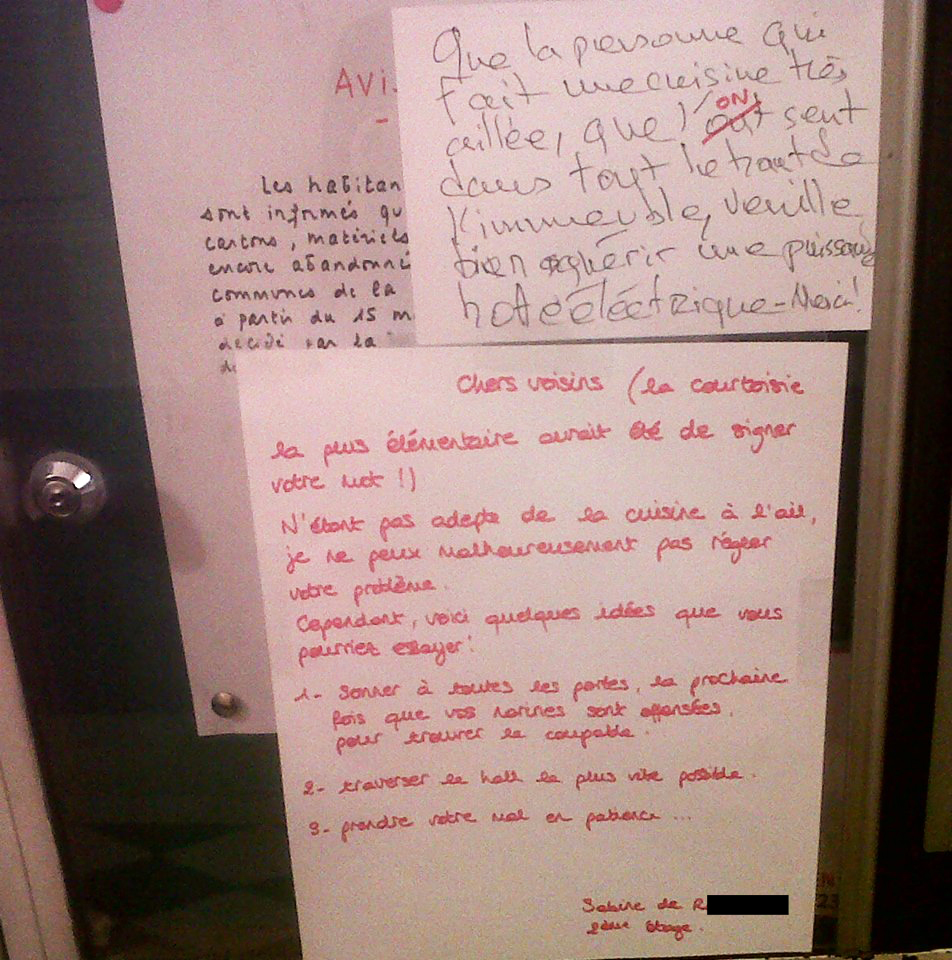 Avi
Les habitan
sont informés qu
cartons, matériels
encore abandonné
communes de la
à partir du 15 m
décidé par la
Que la personne qui
fait une cuisine très
aillée, que l'ON sent
dans tout le haut de
l'immeuble, veuille
bien aquérir une puissante
hote éléctrique - Merci!
Chers voisins (la courtoisie
la plus élémentaire aurait été de signer
votre mot !)
N'étant pas adepte de la cuisine à l'ail,
je ne peux malheureusement pas régler
votre problème.
Cependant, voici quelques idées que vous
pourriez essayer:
1- Sonner à toutes les portes, la prochaine
fois que vos narines sont offensées,
pour trouver le coupable.
2- traverser le hall le plus vite possible.
3- prendre votre mal en patience ...
Sabine de R
2ème étage.